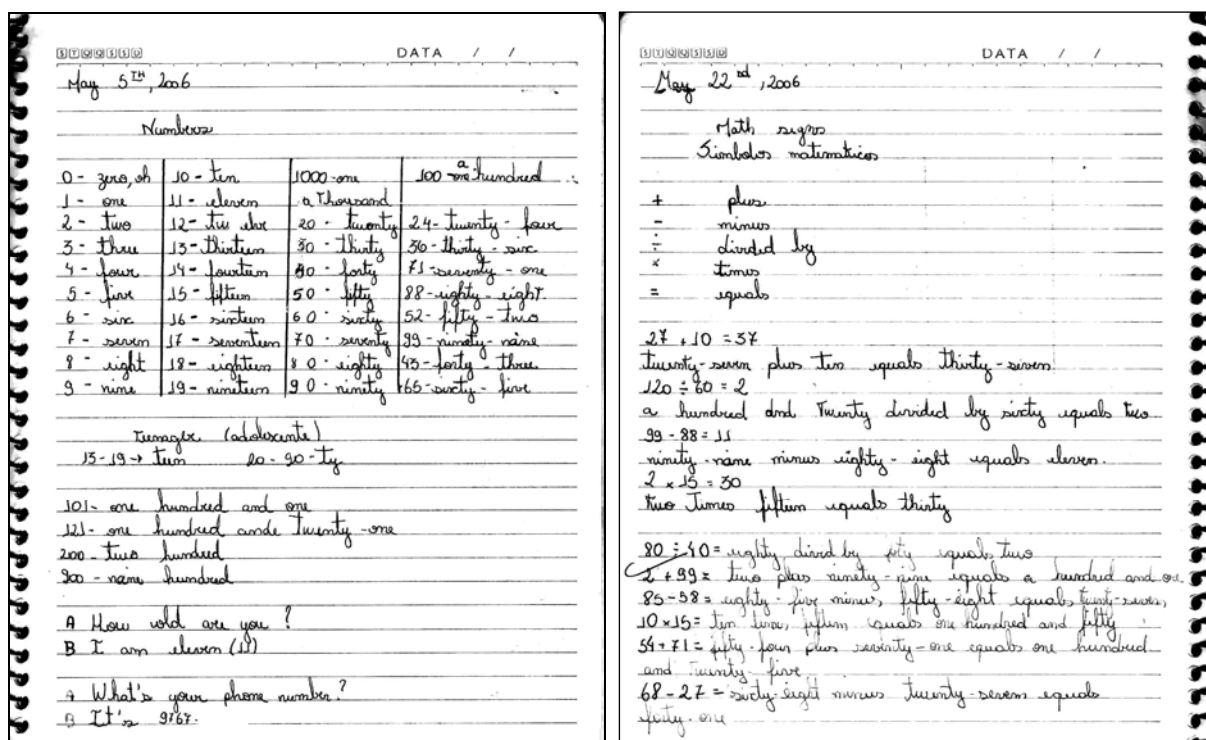 STQQSSD DATA / /
May 5TH, 2006
Numbers
0 - zero, oh 10 - ten 1000 - one 100 - one a hundred
1 - one 11 - eleven a Thousand
2 - two 12 - twelve 20 - twenty 24 - twenty - four
3 - three 13 - thirteen 30 - thirty 36 - thirty - six
4 - four 14 - fourteen 40 - forty 71 - seventy - one
5 - five 15 - fifteen 50 - fifty 88 - eighty - eight.
6 - six 16 - sixteen 60 - sixty 52 - fifty - two
7 - seven 17 - seventeen 70 - seventy 99 - ninety - nine
8 - eight 18 - eighteen 80 - eighty 43 - forty - three
9 - nine 19 - nineteen 90 - ninety 65 - sixty - five
Teenager (adolescente)
13 - 19 → teen 20 - 90 - ty
101 - one hundred and one
121 - one hundred ande Twenty - one
200 - two hundred
900 - nine hundred
A How old are you?
B I am eleven (11)
A What's your phone number?
B It's 9767.
STQQSSD DATA / /
May 22nd, 2006
Math signs
Simbolos matematicos
+ plus
- minus
÷ divided by
× times
= equals
27 + 10 = 37
twenty - seven plus ten equals thirty - seven
120 ÷ 60 = 2
a hundred and Twenty divided by sixty equals two
99 - 88 = 11
ninety - nine minus eighty - eight equals eleven.
2 × 15 = 30
two Times fifteen equals thirty
80 ÷ 40 = eighty divid by equals two
2 + 99 = two plus ninety - nine equals a hundred and one
85 - 58 = eighty - five minus fifty - eight equals twenty - seven
10 × 15 = ten times fifteen equals one hundred and fifty
54 + 71 = fifty - four plus seventy - one equals one hundred
and Twenty - five
68 - 27 = sixty - eight minus twenty - seven equals
forty - one